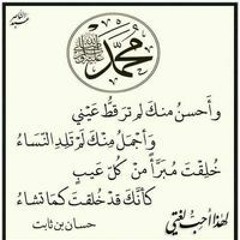 محمد
وأحسنُ منكَ لم ترَ قطُّ عَيْني
وَأجْمَلُ مِنْكَ لَمْ تَلِدِ النّسَاءُ
خُلِقْتَ مُبَرَّأً مِنْ كُلّ عَيبٍ
كأنّكَ قدْ خُلقتَ كمَا تشاءُ
حسان بن ثابت
لهذا أحب لغتي